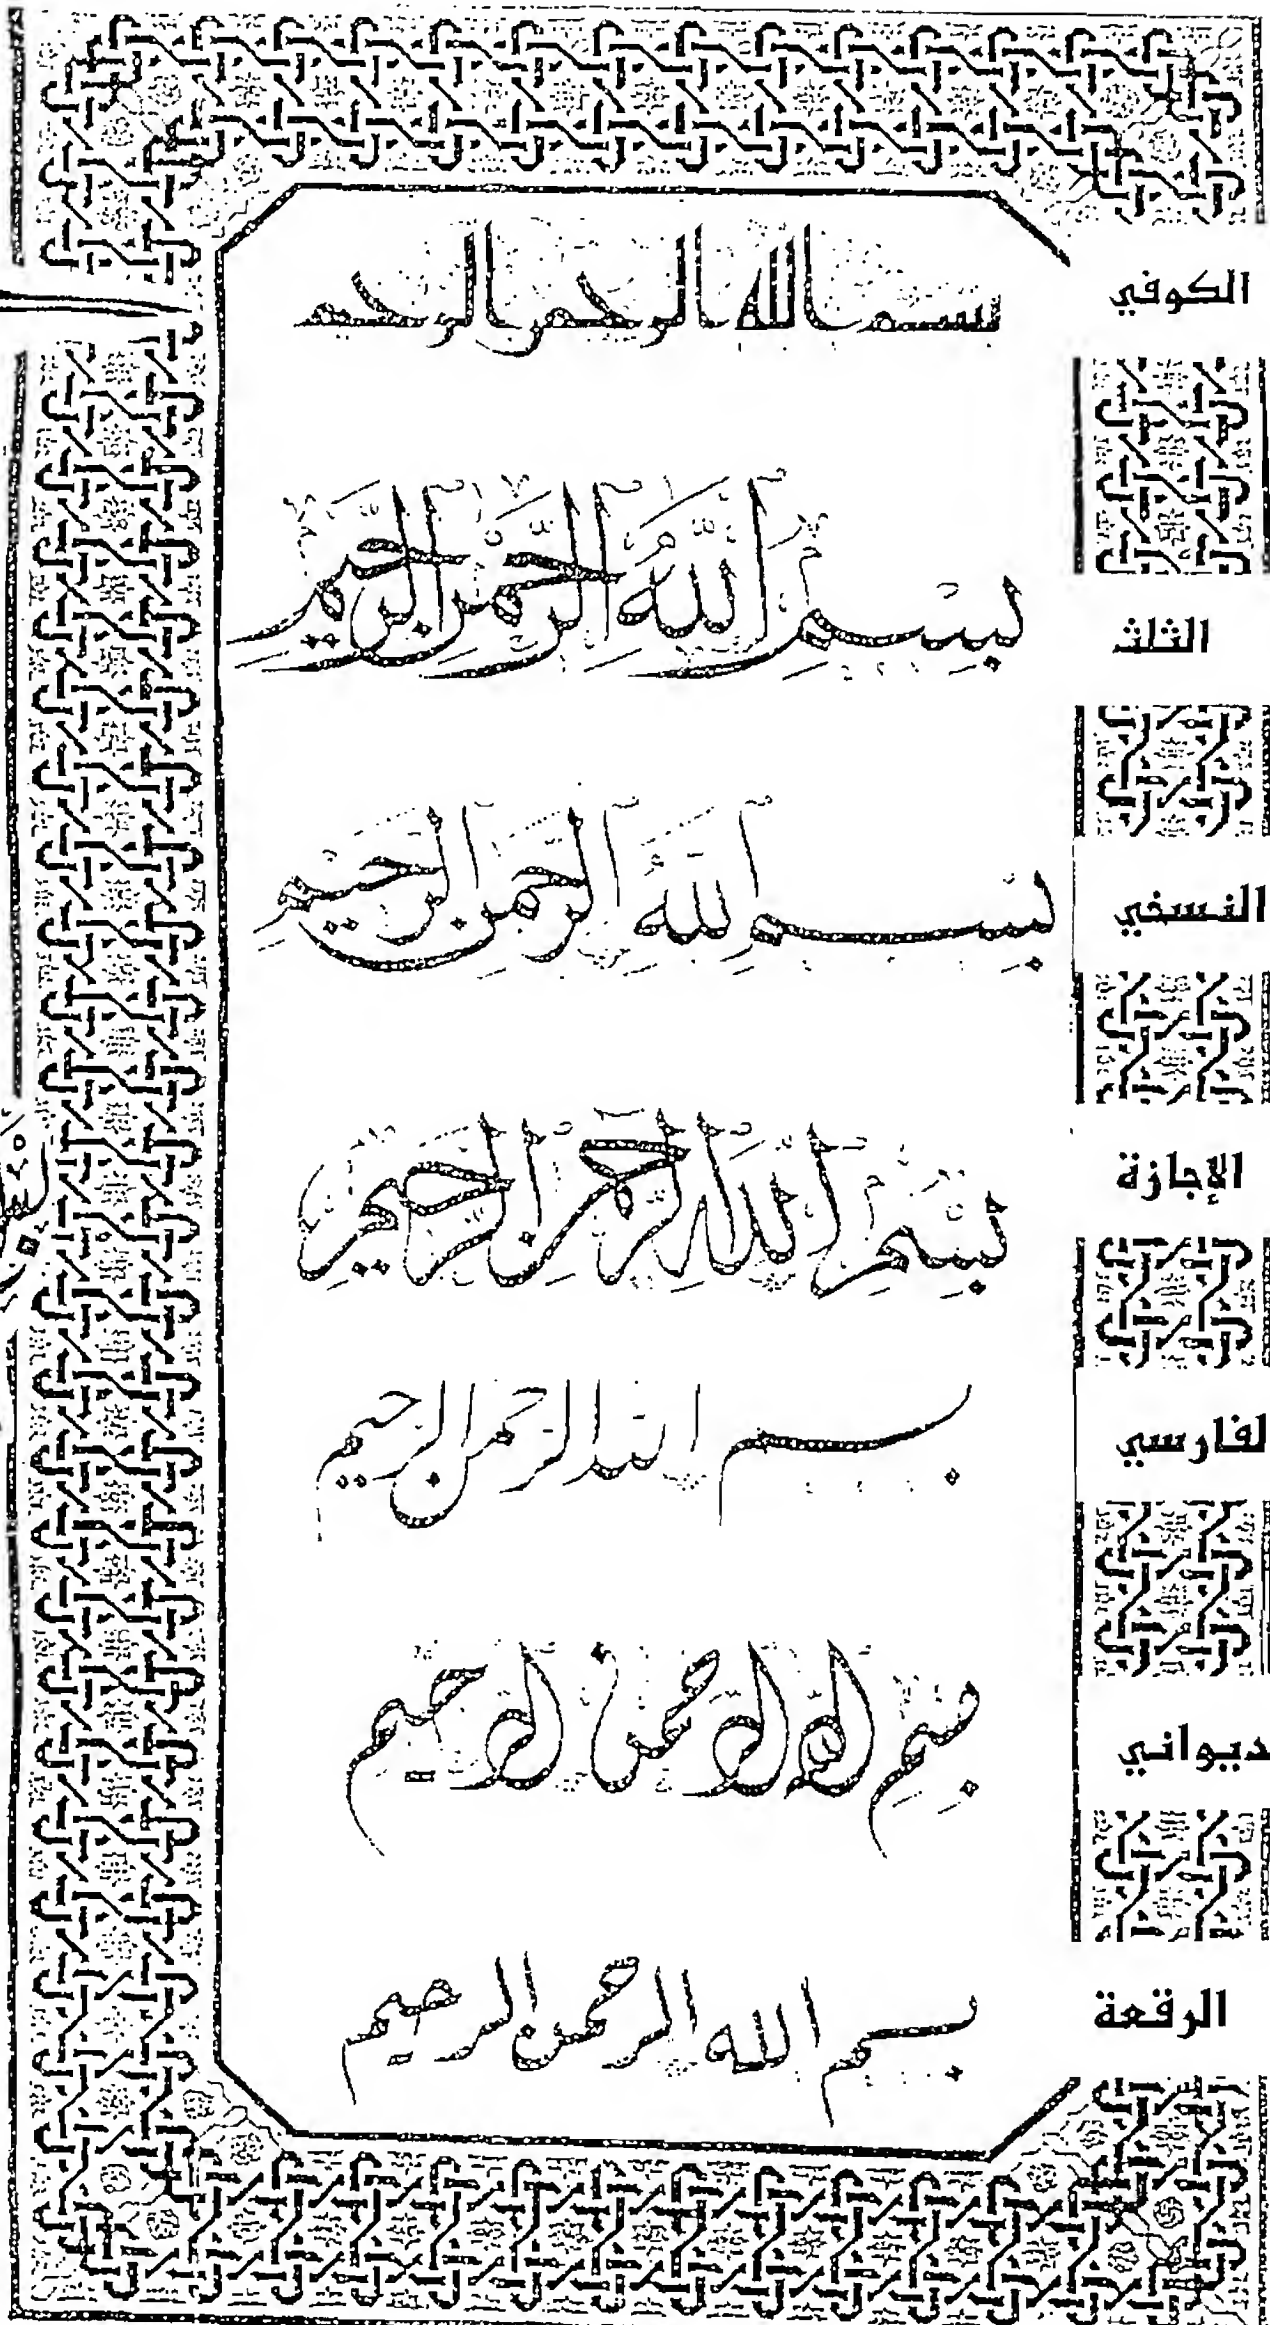 الكوفي
بسم الله الرحمن الرحيم
الثلث
بِسْمِ اللَّهِ الرَّحْمٰنِ الرَّحِيمِ
النسخي
بسم الله الرحمن الرحيم
الإجازة
بسم الله الرحمن الرحيم
لفارسي
بسم الله الرحمن الرحيم
ديواني
بسم الله الرحمن الرحيم
الرقعة
بسم الله الرحمن الرحيم